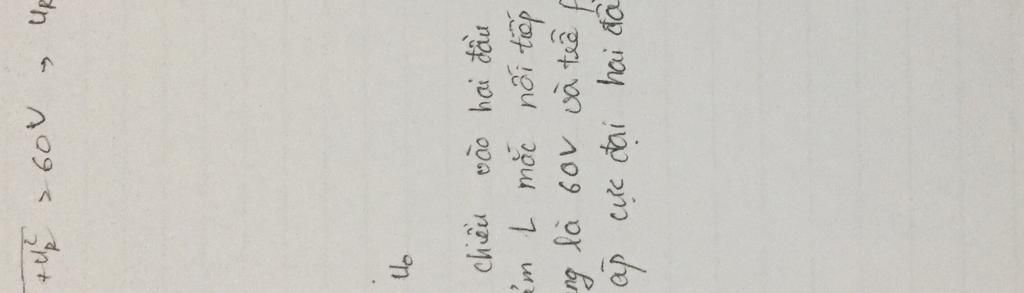 +U_R^2 = 60V → U_R
U_0
chiều vào hai đầu
L mắc nối tiếp
là 60V và
áp cực đại hai